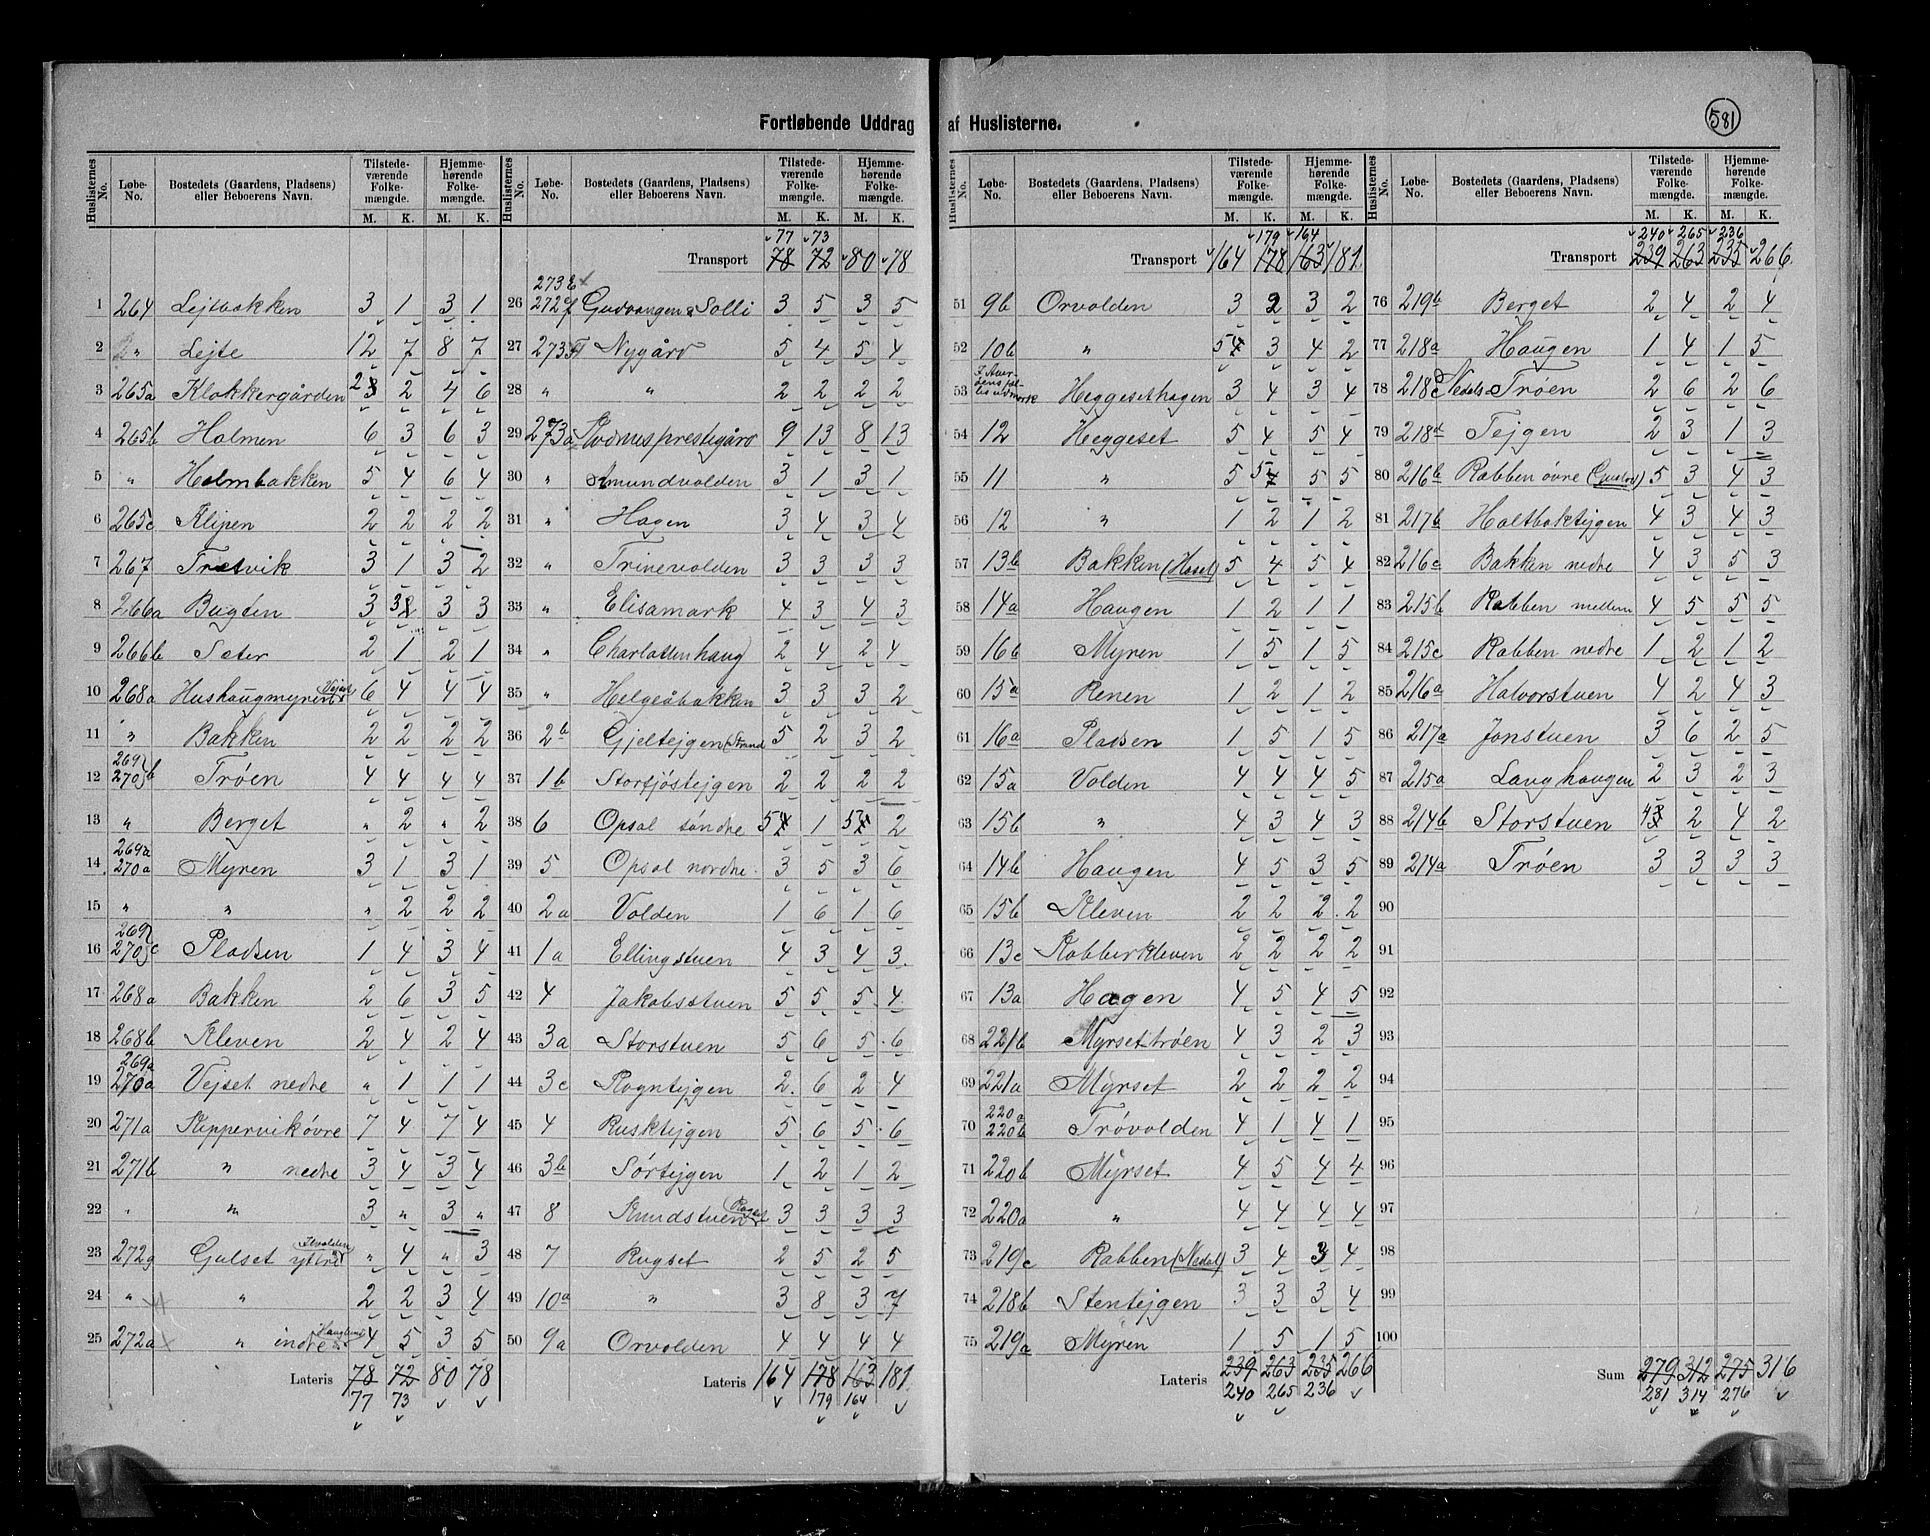 581
Fortløbende Uddrag af Huslisterne.
Huslisternes No. Løbe-No. Bostedets (Gaardens, Pladsens) eller Beboerens Navn. Tilstedeværende Folkemængde. M. K. Hjemmehørende Folkemængde. M. K.
1 264 Lejtbakken 3 1 3 1
2 " Lejte 12 7 8 7
3 265a Klokkergården 2 2 4 6
4 265b Holmen 6 3 6 3
5 " Holmbakken 5 4 6 4
6 265c Klipen 2 2 2 2
7 267 Tretvik 3 1 3 2
8 266a Bugten 3 3 3 3
9 266b Sæter 2 1 2 1
10 268a Hushaugmyren 6 4 4 4
11 " Bakken 2 2 2 2
12 269 270 b Trøen 4 4 4 4
13 " Berget " 2 " 2
14 269a 270a Myren 3 1 3 1
15 " " " 2 2 2
16 269 270 c Pladsen 1 4 3 4
17 268a Bakken 2 6 3 5
18 268b Kleven 2 4 2 4
19 269a 270a Vejset nedre " 1 1 1
20 271a Skippervik øvre 7 4 7 4
21 271b " nedre 3 4 3 4
22 " " 3 " 3 "
23 272g Gulset ytre " 4 " 3
24 " " 2 2 3 4
25 272a " indre 4 5 3 5
Lateris 78 72 80 78
77 73
Huslisternes No. Løbe-No. Bostedets (Gaardens, Pladsens) eller Beboerens Navn. Tilstedeværende Folkemængde. M. K. Hjemmehørende Folkemængde. M. K.
77 73
Transport 78 72 80 78
26 273E 272f Gudvangen Solli 3 5 3 5
27 273 Nygård 5 4 5 4
28 " " 2 2 2 2
29 273a prestegård 9 13 8 13
30 " Amundvolden 3 1 3 1
31 " Hagen 3 4 3 4
32 " Trinevolden 3 3 3 3
33 " Elisamark 4 3 4 3
34 " Charlottenhaug 2 4 2 4
35 " Helgesbakken 3 3 3 2
36 2b Gjeltejgen (Strand 5 2 3 2
37 1b Storfjøstejgen 2 2 2 2
38 6 Opsal søndre 5 1 5 2
39 5 Opsal nordre 3 5 3 6
40 2a Volden 1 6 1 6
41 1a Ellingstuen 4 3 4 3
42 4 Jakobsstuen 5 5 5 4
43 3a Storstuen 5 6 5 6
44 3c Rogntejgen 2 6 2 4
45 4 Rusktejgen 5 6 5 6
46 3b Sørtejgen 1 2 1 2
47 8 Knudstuen 3 3 3 3
48 7 Rugset 2 5 2 5
49 10a " 3 8 3 7
50 9a Orvolden 4 4 4 4
Lateris 164 178 163 181
179 164
Huslisternes No. Løbe-No. Bostedets (Gaardens, Pladsens) eller Beboerens Navn. Tilstedeværende Folkemængde. M. K. Hjemmehørende Folkemængde. M. K.
179 164
Transport 164 178 163 181
51 9b Orvolden 3 2 3 2
52 10b " 5 3 4 2
53 Heggesethagen 3 4 3 4
54 12 Heggeset 5 4 5 4
55 11 " 5 5 5 5
56 12 " 1 2 1 2
57 13b Bakken (Hasel) 5 4 5 4
58 14a Haugen 1 2 1 1
59 16b Myren 1 5 1 5
60 15a Renen 1 2 1 2
61 16a Pladsen 1 5 1 5
62 15a Volden 4 4 4 5
63 15b " 4 3 4 3
64 14b Haugen 4 5 3 5
65 15b Kleven 2 2 2 2
66 13c Rabberkleven 2 2 2 2
67 13a Hagen 4 5 4 5
68 221b Myrsettrøen 4 3 2 3
69 221a Myrset 2 2 2 2
70 220a 220b Trøvolden 4 1 4 1
71 220b Myrset 4 5 4 4
72 220a " 4 4 4 4
73 219c Rabben (Nedal) 3 4 3 4
74 218b Stentejgen 3 3 3 4
75 219a Myren 1 5 1 5
Lateris 239 263 235 266
240 265 236
Huslisternes No. Løbe-No. Bostedets (Gaardens, Pladsens) eller Beboerens Navn. Tilstedeværende Folkemængde. M. K. Hjemmehørende Folkemængde. M. K.
240 265 236
Transport 239 263 235 266
76 219b Berget 2 4 2 4
77 218a Haugen 1 4 1 5
78 218c Nedals Trøen 2 6 2 6
79 218d Tejgen 2 3 1 3
80 216b Rabben øvre 5 3 4 3
81 217b Holtboktejgen 4 3 4 3
82 216c Bakken nedre 4 3 5 3
83 215b Rabben mellem 4 5 5 5
84 215c Rabben nedre 1 2 1 2
85 216a Halvorstuen 4 2 4 3
86 217a Jonstuen 3 6 2 5
87 215a Langhaugen 2 3 2 3
88 214b Storstuen 4 2 4 2
89 214a Trøen 3 3 3 3
90
91
92
93
94
95
96
97
98
99
100
Sum 279 312 275 316
281 314 276